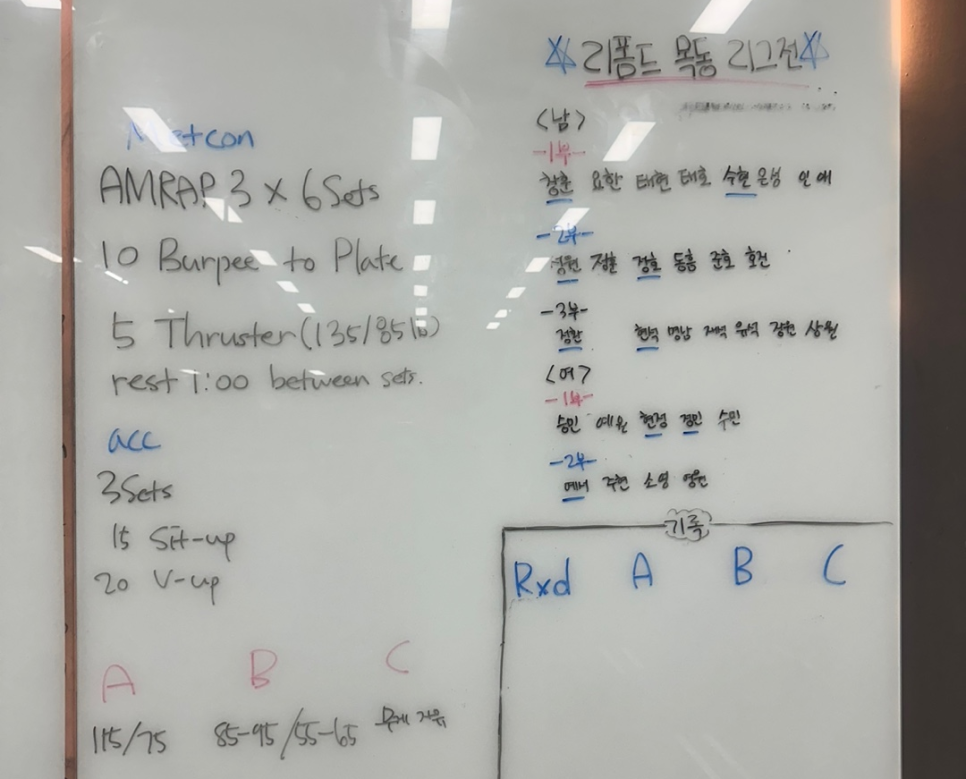 Metcon
AMRAP 3 x 6 Sets
10 Burpee to Plate
5 Thruster (135/85 lb)
rest 1:00 between sets.
acc
3 Sets
15 Sit-up
20 V-up
A B C
115/75 85-95/55-65 무게 자유
리폼드 목동 리그전
<남>
-1부-
창훈 요한 태현 태호 수현 은성 인애
-2부-
정훈 경호 동흠 준호 호건
-3부-
정환 현석 명남 재석 유석 강현 상원
<여>
-1부-
승민 예원 현정 경민 수민
-2부-
예서 주현 소영 영원
기록
Rxd A B C